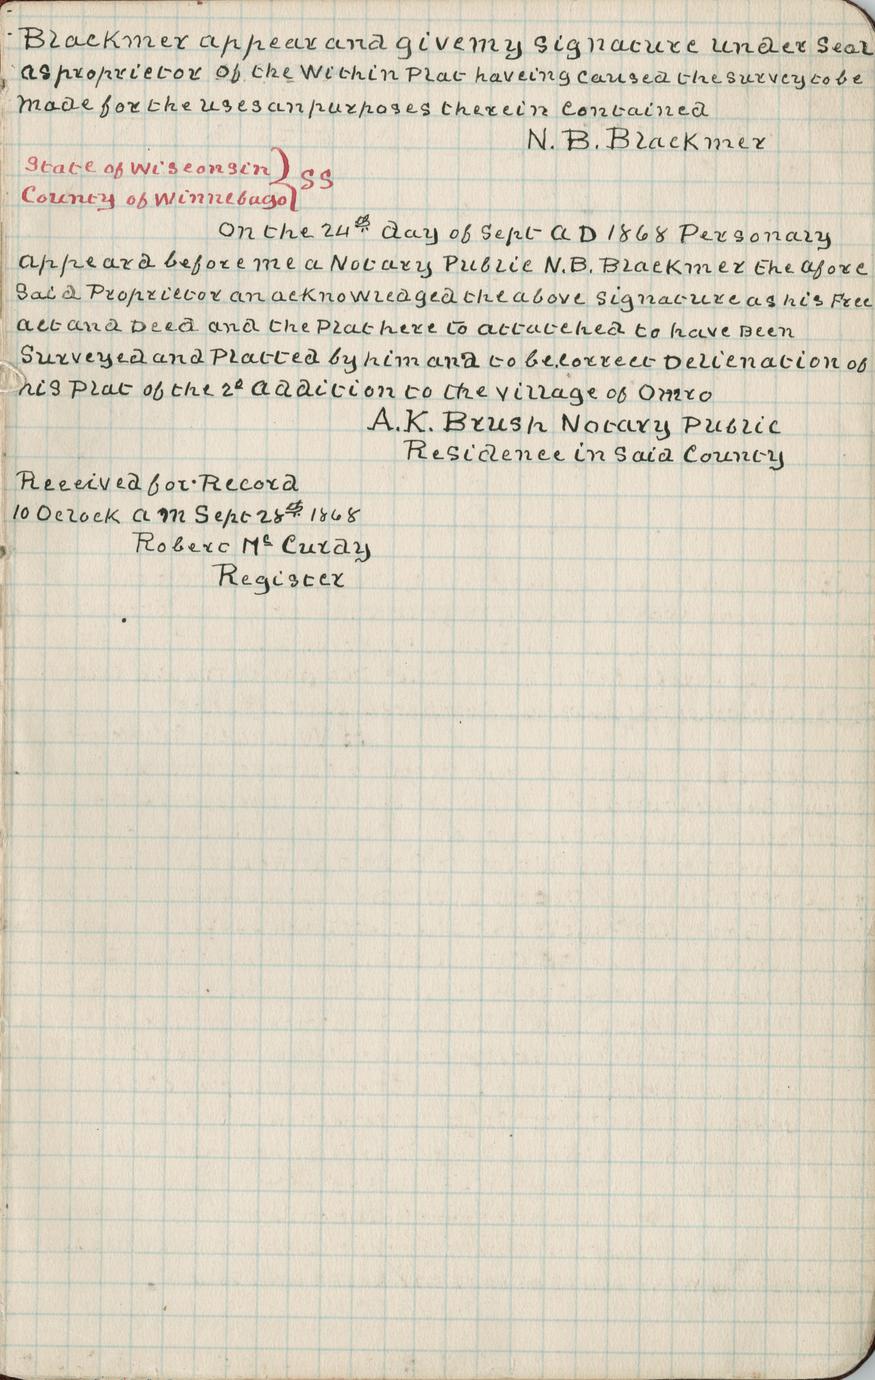 Blackmer appear and give my signature under Seal
as proprietor of the Within Plat haveing Caused the survey to be
made for the uses an purposes therein Contained
N. B. Blackmer
State of Wisconsin } SS
County of Winnebago
On the 24th day of Sept A D 1868 Personaly
appeard before me a Notary Public N.B. Blackmer the afore
Said Proprietor an acknowledged the above signature as his Free
act and Deed and the Plat here to attatched to have Been
Surveyed and Platted by him and to be correct Delienation of
his Plat of the 2d Addition to the village of Omro
A.K. Brush Notary Public
Residence in Said County
Received for Record
10 Oclock A M Sept 28th 1868
Robert Mc Curdy
Register